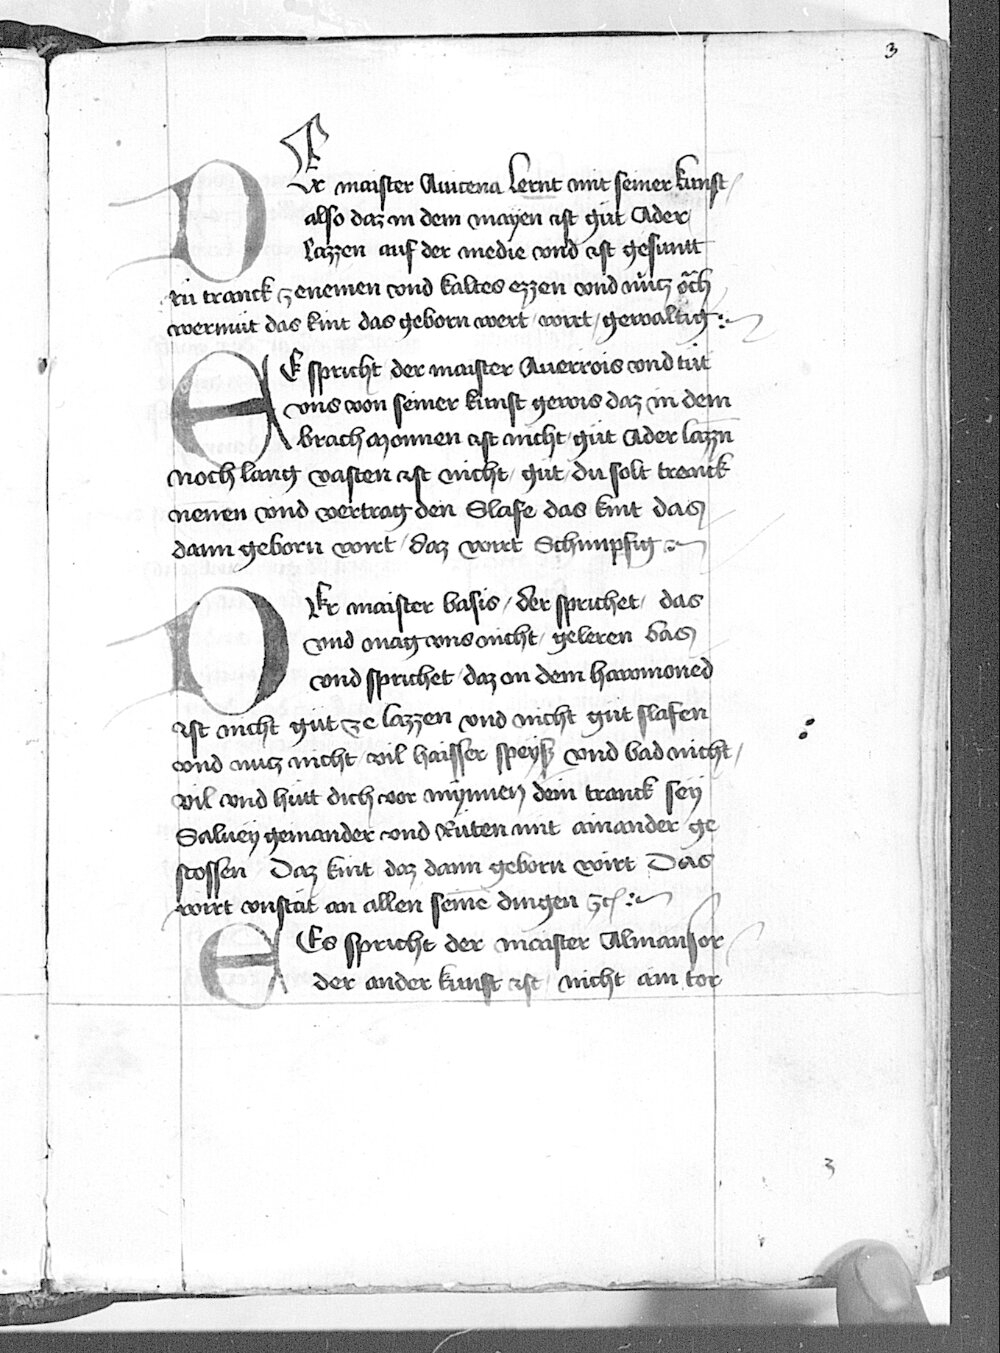 3
DEr maister Auicena Lernt mit seiner kunst
also daz in dem mayen ist gůt Ader
Lazzen auf der medie vnd ist gesunt
tranck zenemen vnd kaltes ezzen vnd nücz och
wermüt das kint das geborn wert / wirt / gewaltig
ES spricht der maister Auerrois vnd tüt
vns von seiner kunst gewis daz in dem
brach monnen ist nicht gůt Ader lazzn
noch lang vasten ist nicht / gůt / du solt trenck
nemen vnd vertrag den Slafe das kint das
dann geborn wirt / daz wirt Schimpfig
DEr maister basis / der sprichet / das
vnd mag vns nicht / geleren bas
vnd sprichet / daz in dem hawmoned
ist nicht gůt ze lazzen vnd nicht gůt slafen
vnd nucz nicht vil haisser speyß vnd bad nicht /
vil vnd hütt dich vor mynnen dein tranck sey
Saluey gemander vnd Rüten mit ainander ge
stossen Daz kint daz dann geborn wirt Das
wirt vnstät an allen seine dingen
ES spricht der maister Almansor
der ander kunst ist / nicht ain tor
3